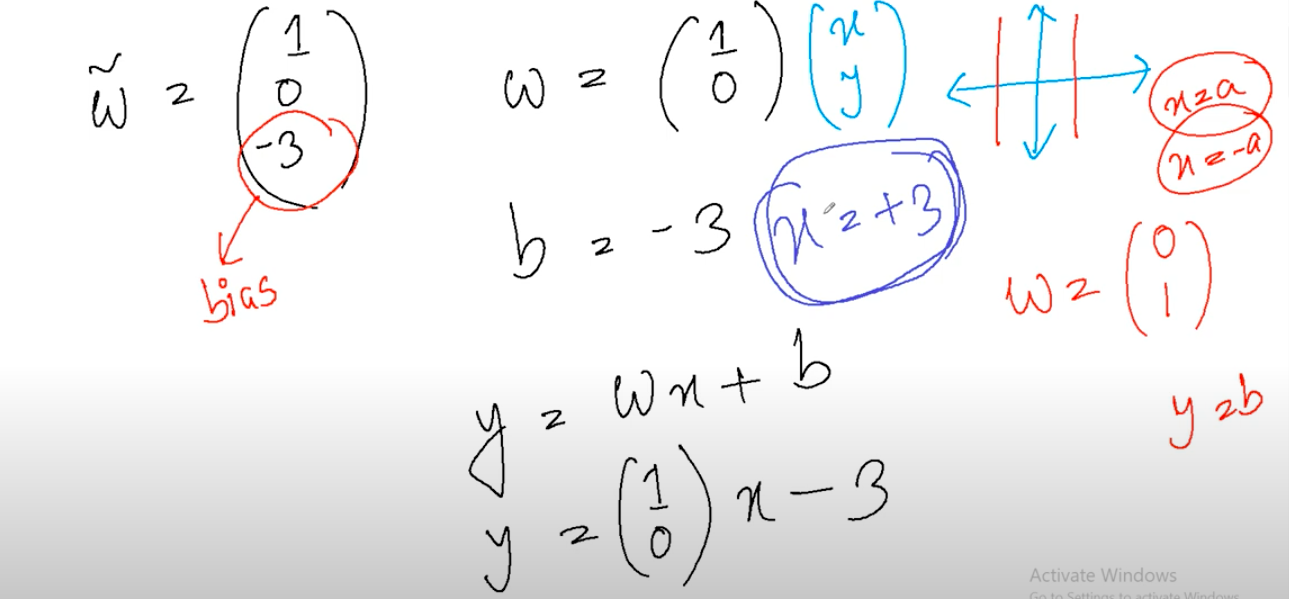 w̃ = (1 0 -3)
bias
w = (1 0) (x y)
b = -3
x = +3
x = a
x = -a
w = (0 1)
y = b
y = wx + b
y = (1 0) x - 3
Activate Windows
Go to Settings to activate Windows.